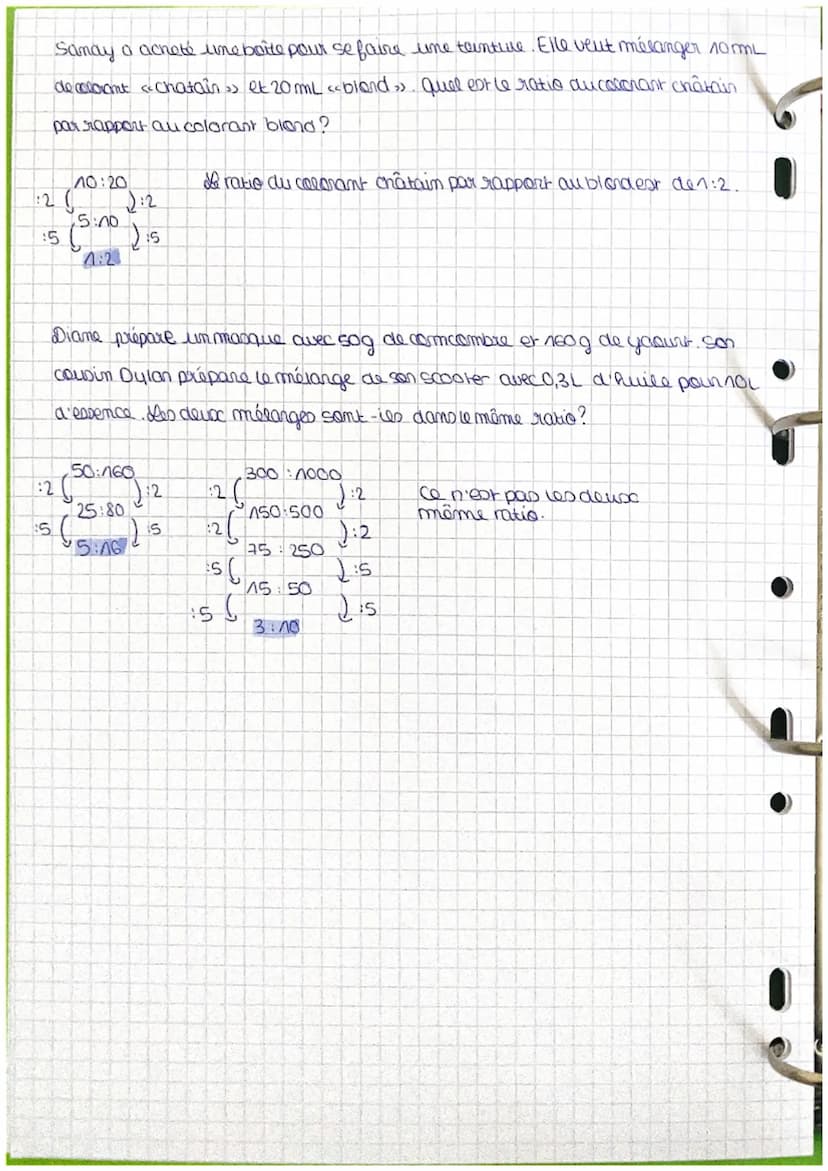 Samay a acheté une boîte pour se faire une teinture. Elle veut mélanger 10 mL
de colorant «chatain» et 20 mL «blond». Quel est le ratio du colorant châtain
par rapport au colorant blond?
10:20
:2 :2
5:10
:5 :5
1:2
Le ratio du colorant châtain par rapport au blond est de 1:2.
Diane prépare un masque avec 50g de concombre et 160g de yaourt. Son
cousin Dylan prépare le mélange de son scooter avec 0,3L d'huile pour 10L
d'essence. Les deux mélanges sont-ils dans le même ratio?
50:160
:2 :2
25:80
:5 :5
5:16
300:1000
:2 :2
150:500
:2 :2
75:250
:5 :5
15:50
:5 :5
3:10
Ce n'est pas les deux
même ratio.